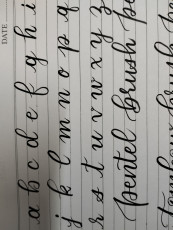 DATE
a b c d e f g h i
j k l m n o p q
r s t u v w x y z
pentel brush pe
brush pe